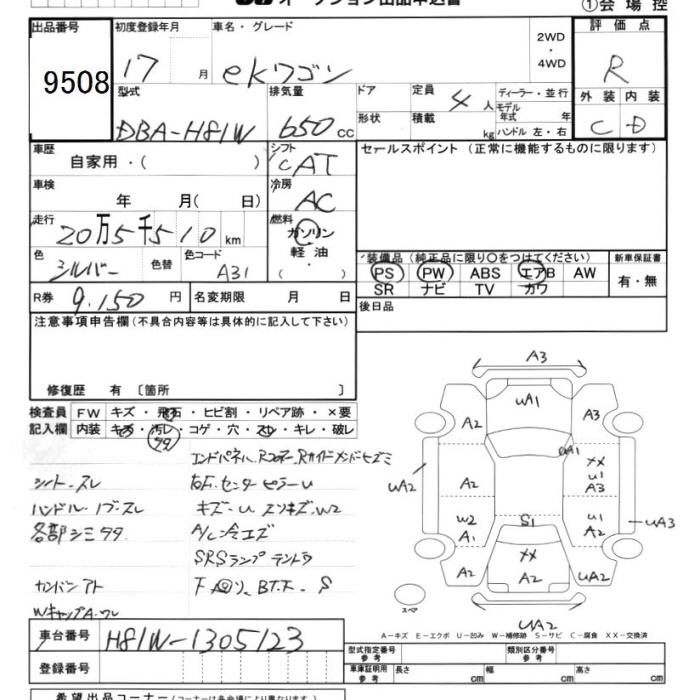 オークション出品申込書 ①会場控
出品番号 初度登録年月 車名・グレード 評価点
9508 17 月 ekワゴン 2WD・4WD R
型式 排気量 ドア 定員 4人 ディーラー・並行 外装 内装
DBA-H81W 650cc 形状 積載 kg モデル年式 年 C D
ハンドル 左・右
車歴 シフト セールスポイント(正常に機能するものに限ります)
自家用・( ) CAT
車検 冷房
年 月( 日) AC
走行 燃料
20万5千510km ガソリン
軽油
・( )
色 色替 色コード
シルバー A31
装備品(純正品に限り○をつけてください) 新車保証書
PS PW ABS エアB AW 有・無
SR ナビ TV カワ
R券 9.150円 名変期限 月 日 後日品
注意事項申告欄(不具合内容等は具体的に記入して下さい)
修復歴 有 〔箇所 〕
検査員 FW キズ・飛石・ヒビ割・リペア跡・×要
記入欄 内装 キズ・汚レ・コゲ・穴・スレ・キレ・破レ
シート・スレ
ハンドルノブ・スレ キズ・U W2
各部シミ A/C冷エズ
SRSランプテントウ
カンバンアト
A3
UA1
A2 A3
UA1
UA2 A2 XX U1 A3
W2 A1 S1 U1 A2 UA3
A2 XX A2 UA2
スペア
UA2
A-キズ E-エクボ U-凹み W-補修跡 S-サビ C-腐食 XX-交換済
車台番号 H81W-1305123
登録番号
型式指定番号 参考 類別区分番号 参考
車庫証明用 参考 長さ cm 幅 cm 高さ cm
希望出品コーナー(コーナーは各会場により異なります)